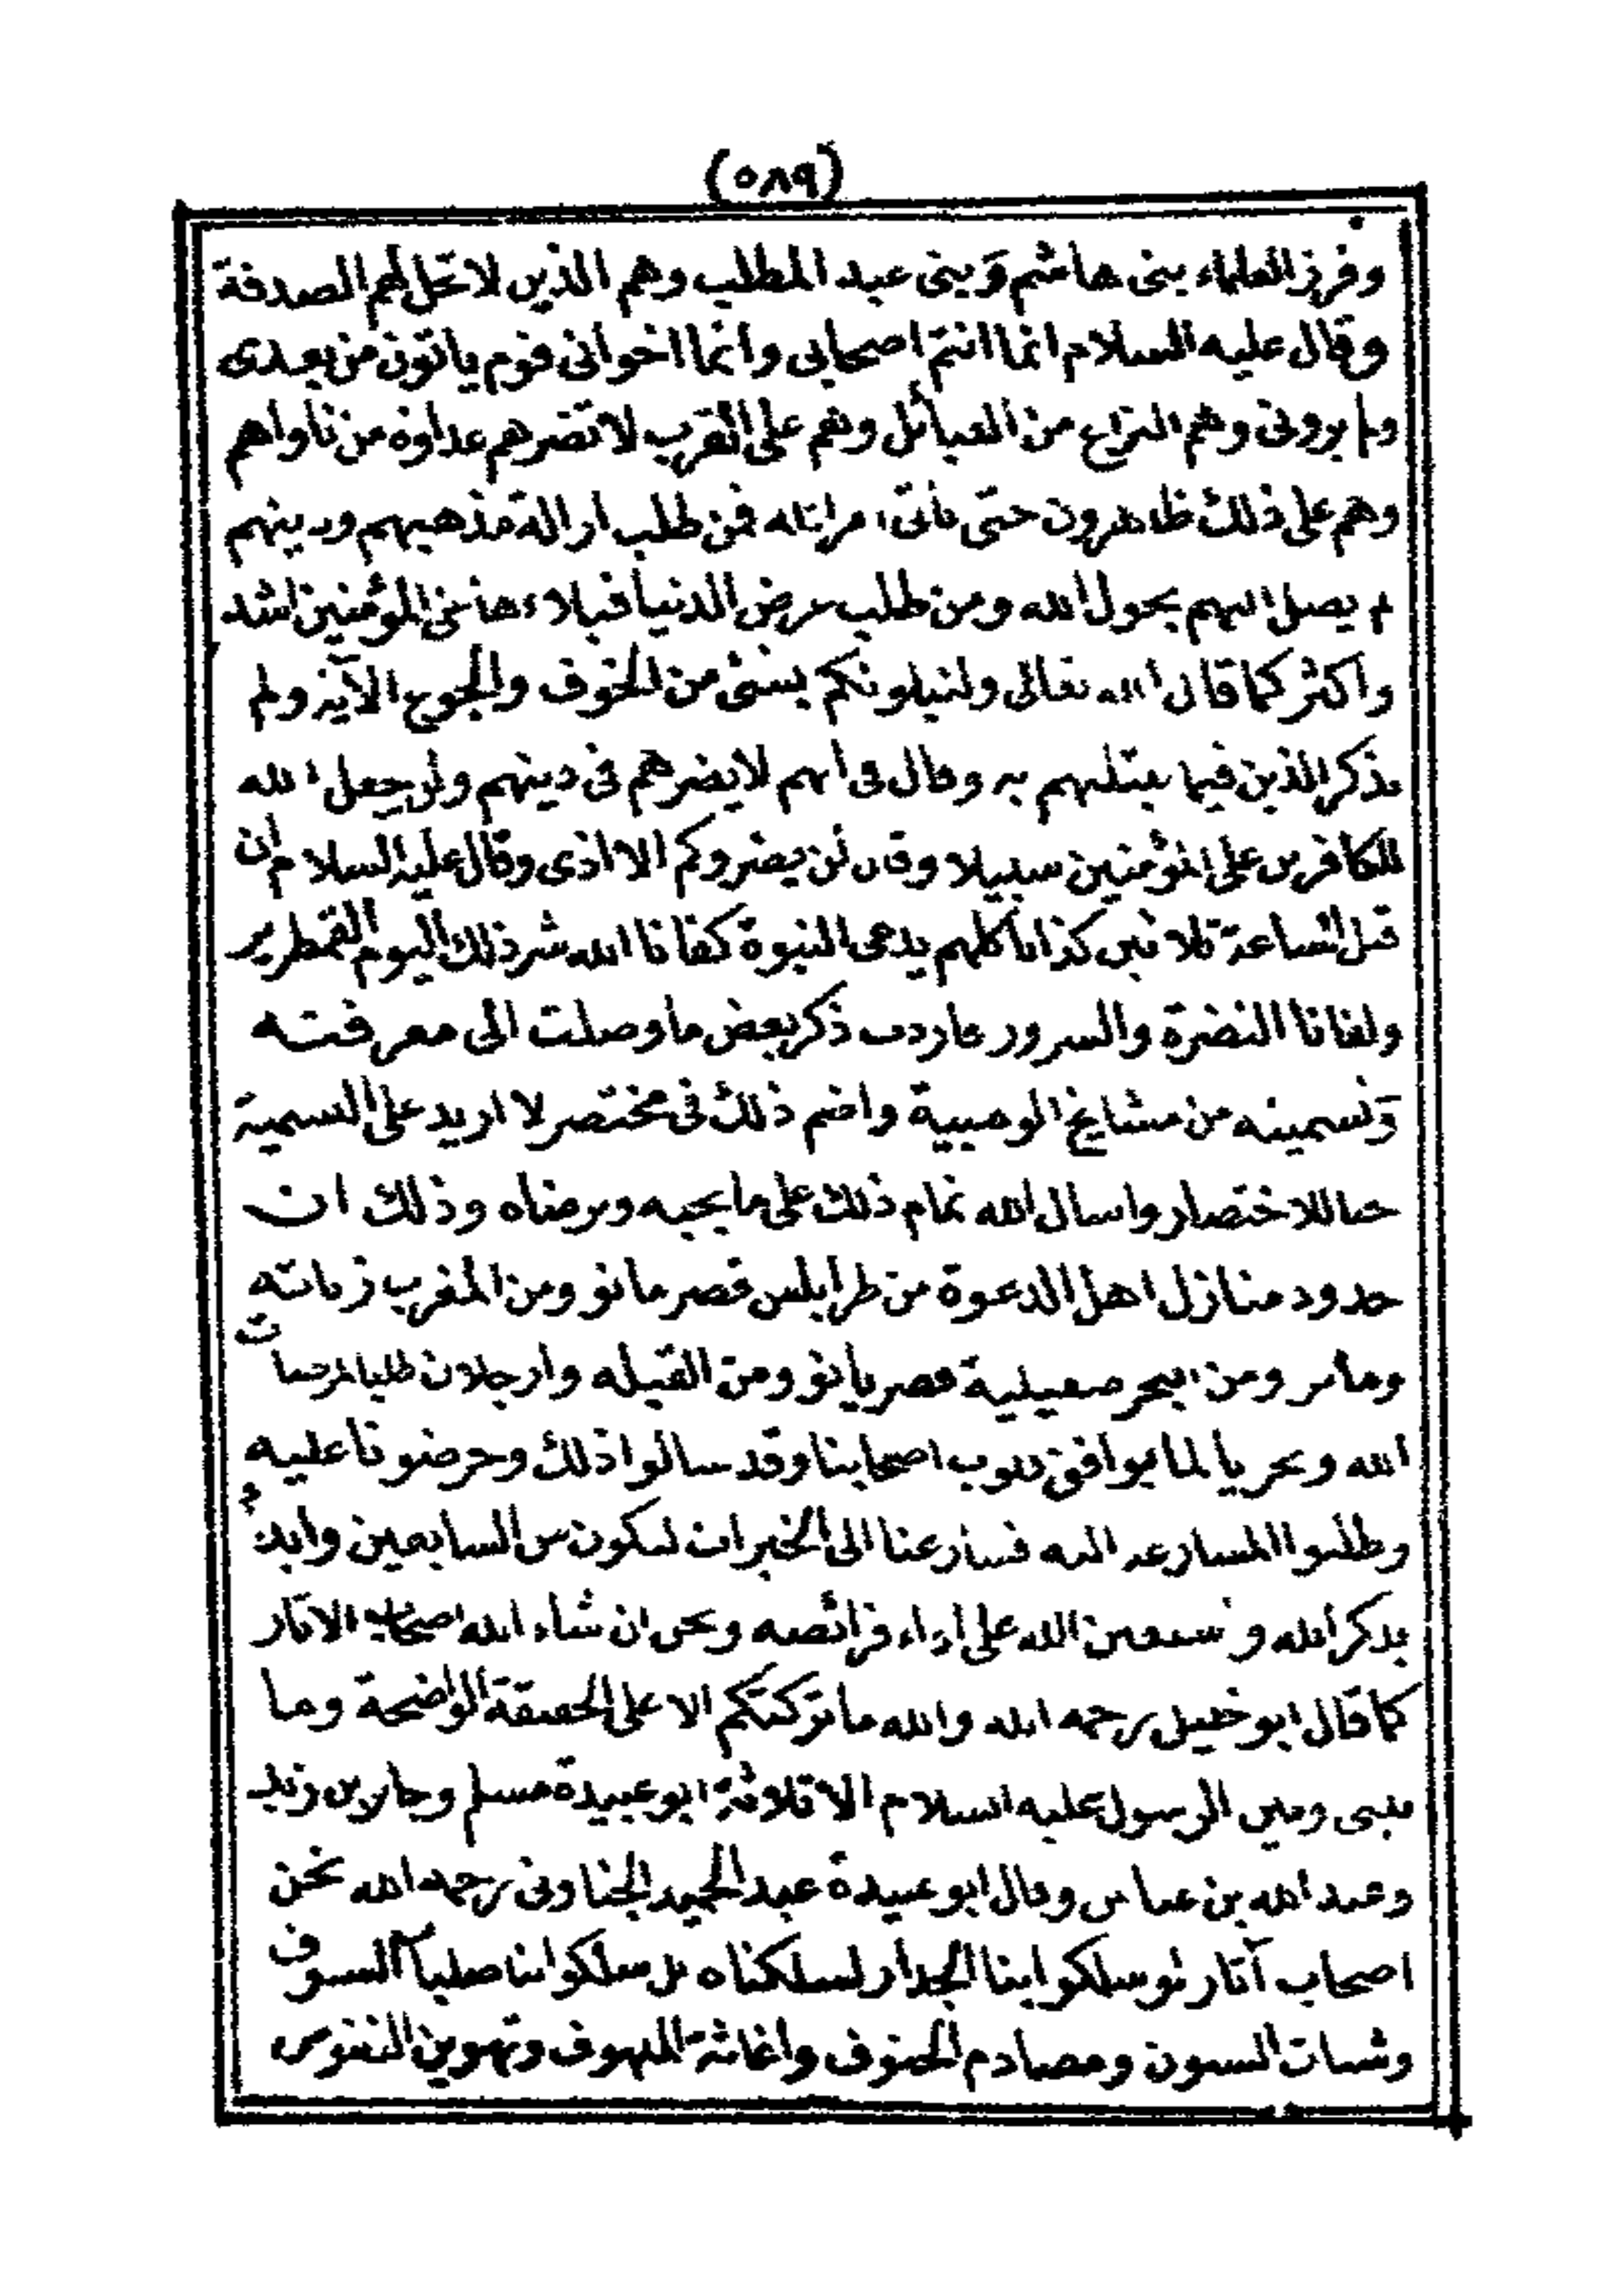 (٥٨٩)
وفرز العلماء بنى هاشم وَبنى عبد المطلب وهم الذين لا تحل لهم الصدقة
وقال عليه السلام انما انتم اصحابى وانما اخوانى قوم ياتون من بعدى
ولم يرونى وهم النزاع من القبائل وهم على القرب لا تضرهم عداوة من ناواهم
وهم على ذلك ظاهرون حتى ياتى امر الله فمن طلب ازالة مذهبهم ودينهم
لم يصل اليهم بحول الله ومن طلب عرض الدنيا فبلاءها فى المؤمنين اشد
واكثر كما قال الله تعالى ولنبلونكم بشئ من الخوف والجوع الآية ولم
يذكر الذين فيما يبتليهم به وقال فى انهم لا يضرهم فى دينهم ولن يجعل الله
للكافرين على المؤمنين سبيلا وقال لن يضروكم الا اذى وقال عليه السلام ان
قبل الساعة ثلاثين كذابا كلهم يدعى النبوة كفانا الله شر ذلك اليوم القمطرير
ولقانا النضرة والسرور فاردت ذكر بعض ما وصلت الى معرفته
وتسميته من مشايخ الوهبية واضم ذلك فى مختصر لا ازيد على التسمية
حبا للاختصار واسال الله تمام ذلك على ما يحبه ويرضاه وذلك ان
حدود منازل اهل الدعوة من طرابلس قصر مانو ومن المغرب زناتة
ومامر ومن البحر صقيلية قصر يانو ومن القبله وارجلان طلبا لمرضات
الله وتحريا لما يوافق قلوب اصحابنا وقد سالوا ذلك وحرضونا عليه
وطلبوا المسارعة اليه فسارعنا الى الخيرات لنكون من السابقين وابدؤ
بذكر الله ونستعين الله على اداء فرائضه ونحن ان شاء الله اصحاب الاثار
كما قال ابو خليل رحمه الله والله ما تركتكم الا على الحقيقة الواضحة وما
بينى وبين الرسول عليه السلام الا ثلاثة ابو عبيدة مسلم وجابر بن زيد
وعبد الله بن عباس وقال ابو عبيدة عبد الحميد الجناونى رحمه الله نحن
اصحاب آثار لو سلكوا بنا الجدار لسلكناه بل سلكوا بنا صليل السيوف
وشبات السيوف ومصادم الحتوف واغاثة الملهوف وتهوين النفوس